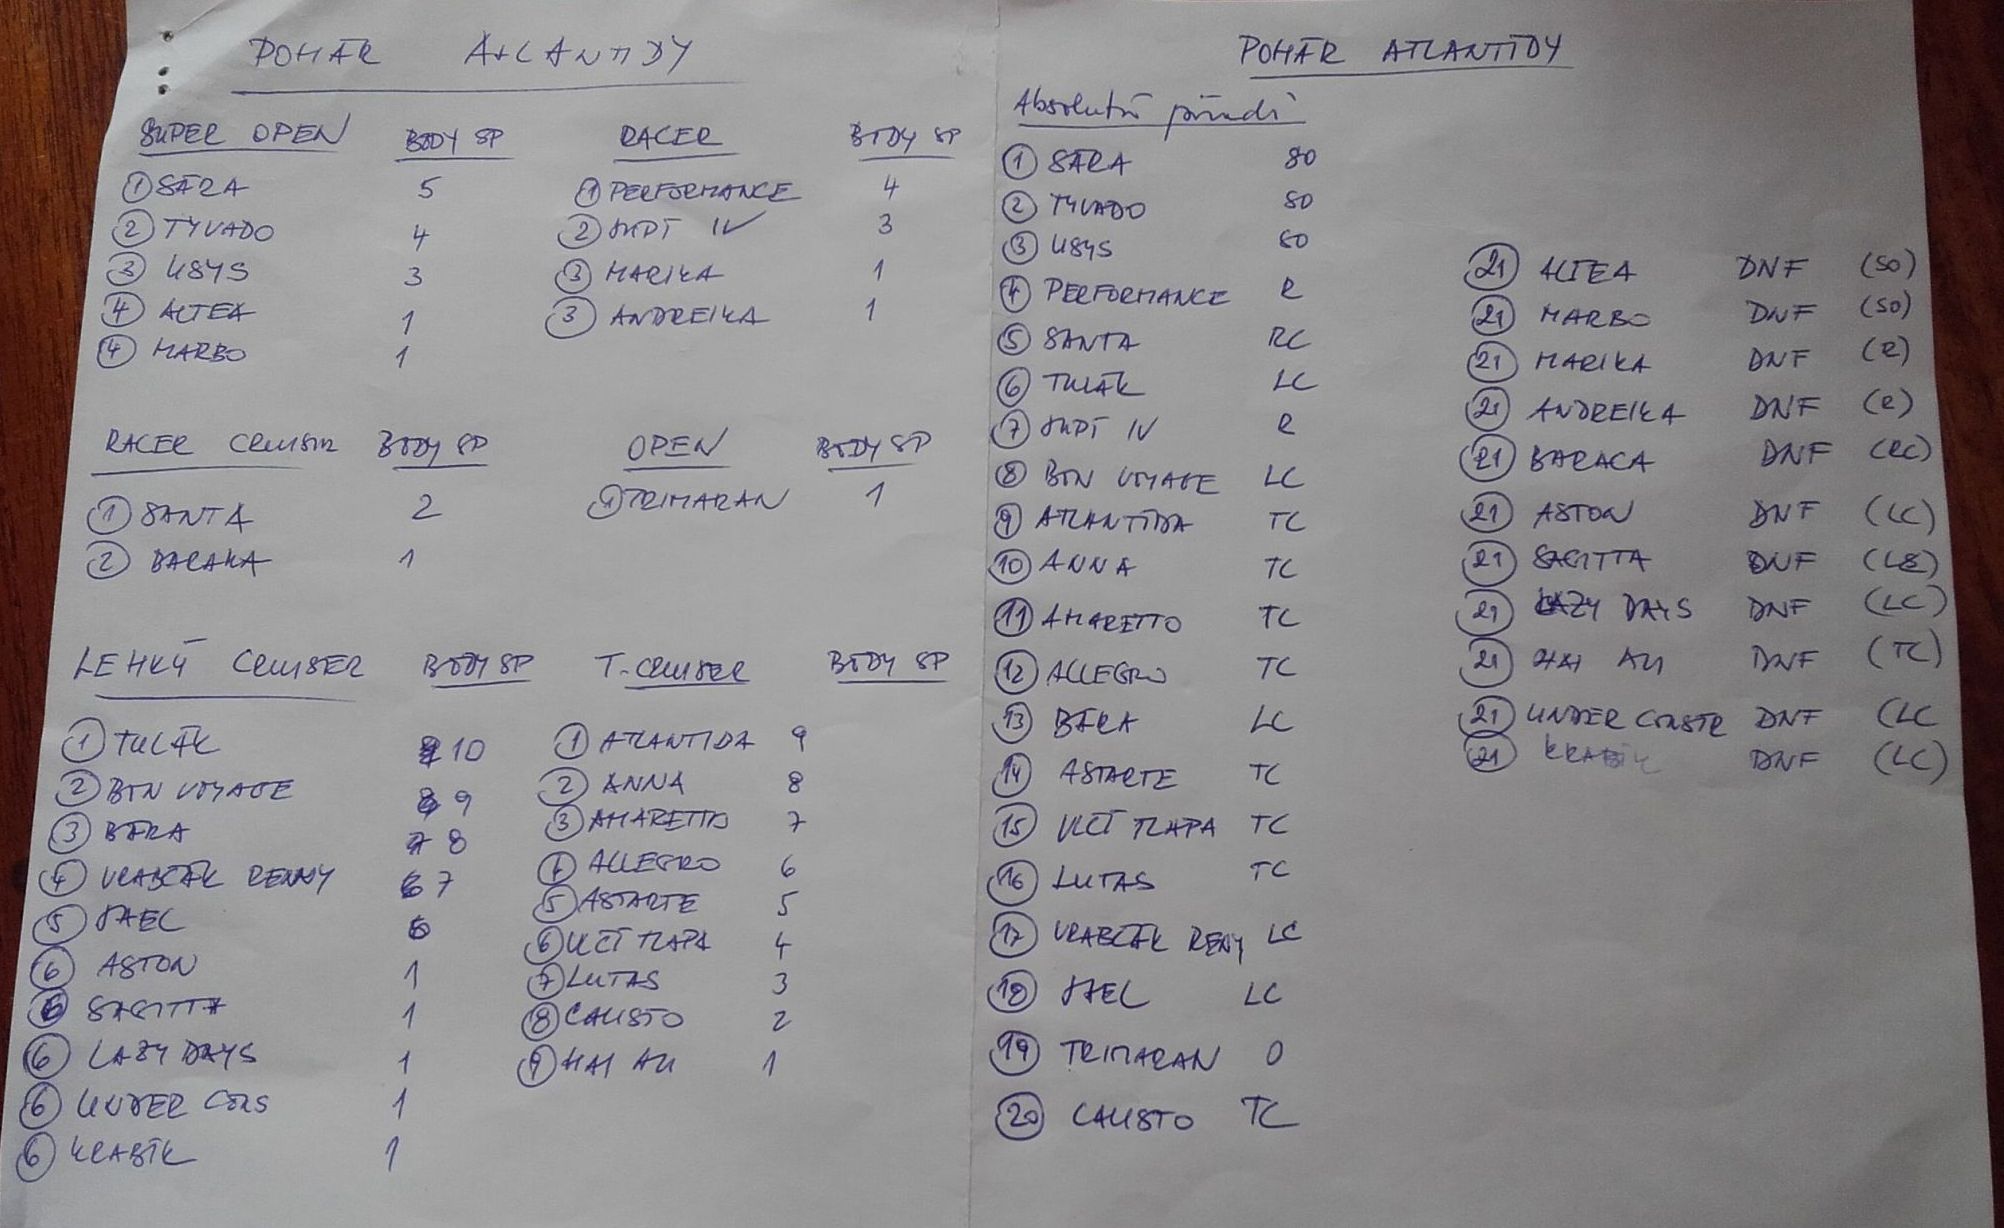 POHÁR ATLANTIDY
SUPER OPEN BODY SP
1 SÁRA 5
2 TYVADO 4
3 USYS 3
4 ALTEA 1
4 MARBO 1
RACER BODY SP
1 PERFORMANCE 4
2 IV 3
3 MARIKA 1
3 ANDREIKA 1
RACER CRUISER BODY SP
1 SANTA 2
2 BARAKA 1
OPEN BODY SP
1 TRIMARAN 1
LEHKÝ CRUISER BODY SP
1 TULÁK 10
2 BON VOYAGE 9
3 BÁRA 8
4 VRABČÁK RENNY 7
5 JAEL 6
6 ASTON 1
6 SAGITTA 1
6 LAZY DAYS 1
6 UNDER CONS 1
6 KRABÍK 1
T-CRUISER BODY SP
1 ATLANTIDA 9
2 ANNA 8
3 AMARETTO 7
4 ALLEGRO 6
5 ASTARTE 5
6 VLČÍ TLAPA 4
7 LUTAS 3
8 CALISTO 2
9 HAI AU 1
POHÁR ATLANTIDY
Absolutní pořadí
1 SÁRA SO
2 TYVADO SO
3 USYS SO
4 PERFORMANCE R
5 SANTA RC
6 TULÁK LC
7 IV R
8 BON VOYAGE LC
9 ATLANTIDA TC
10 ANNA TC
11 AMARETTO TC
12 ALLEGRO TC
13 BÁRA LC
14 ASTARTE TC
15 VLČÍ TLAPA TC
16 LUTAS TC
17 VRABČÁK RENY LC
18 JAEL LC
19 TRIMARAN O
20 CALISTO TC
21 ALTEA DNF (SO)
21 MARBO DNF (SO)
21 MARIKA DNF (R)
21 ANDREIKA DNF (R)
21 BARACA DNF (RC)
21 ASTON DNF (LC)
21 SAGITTA DNF (LC)
21 LAZY DAYS DNF (LC)
21 HAI AU DNF (TC)
21 UNDER CONSTR DNF (LC
21 KRABÍK DNF (LC)